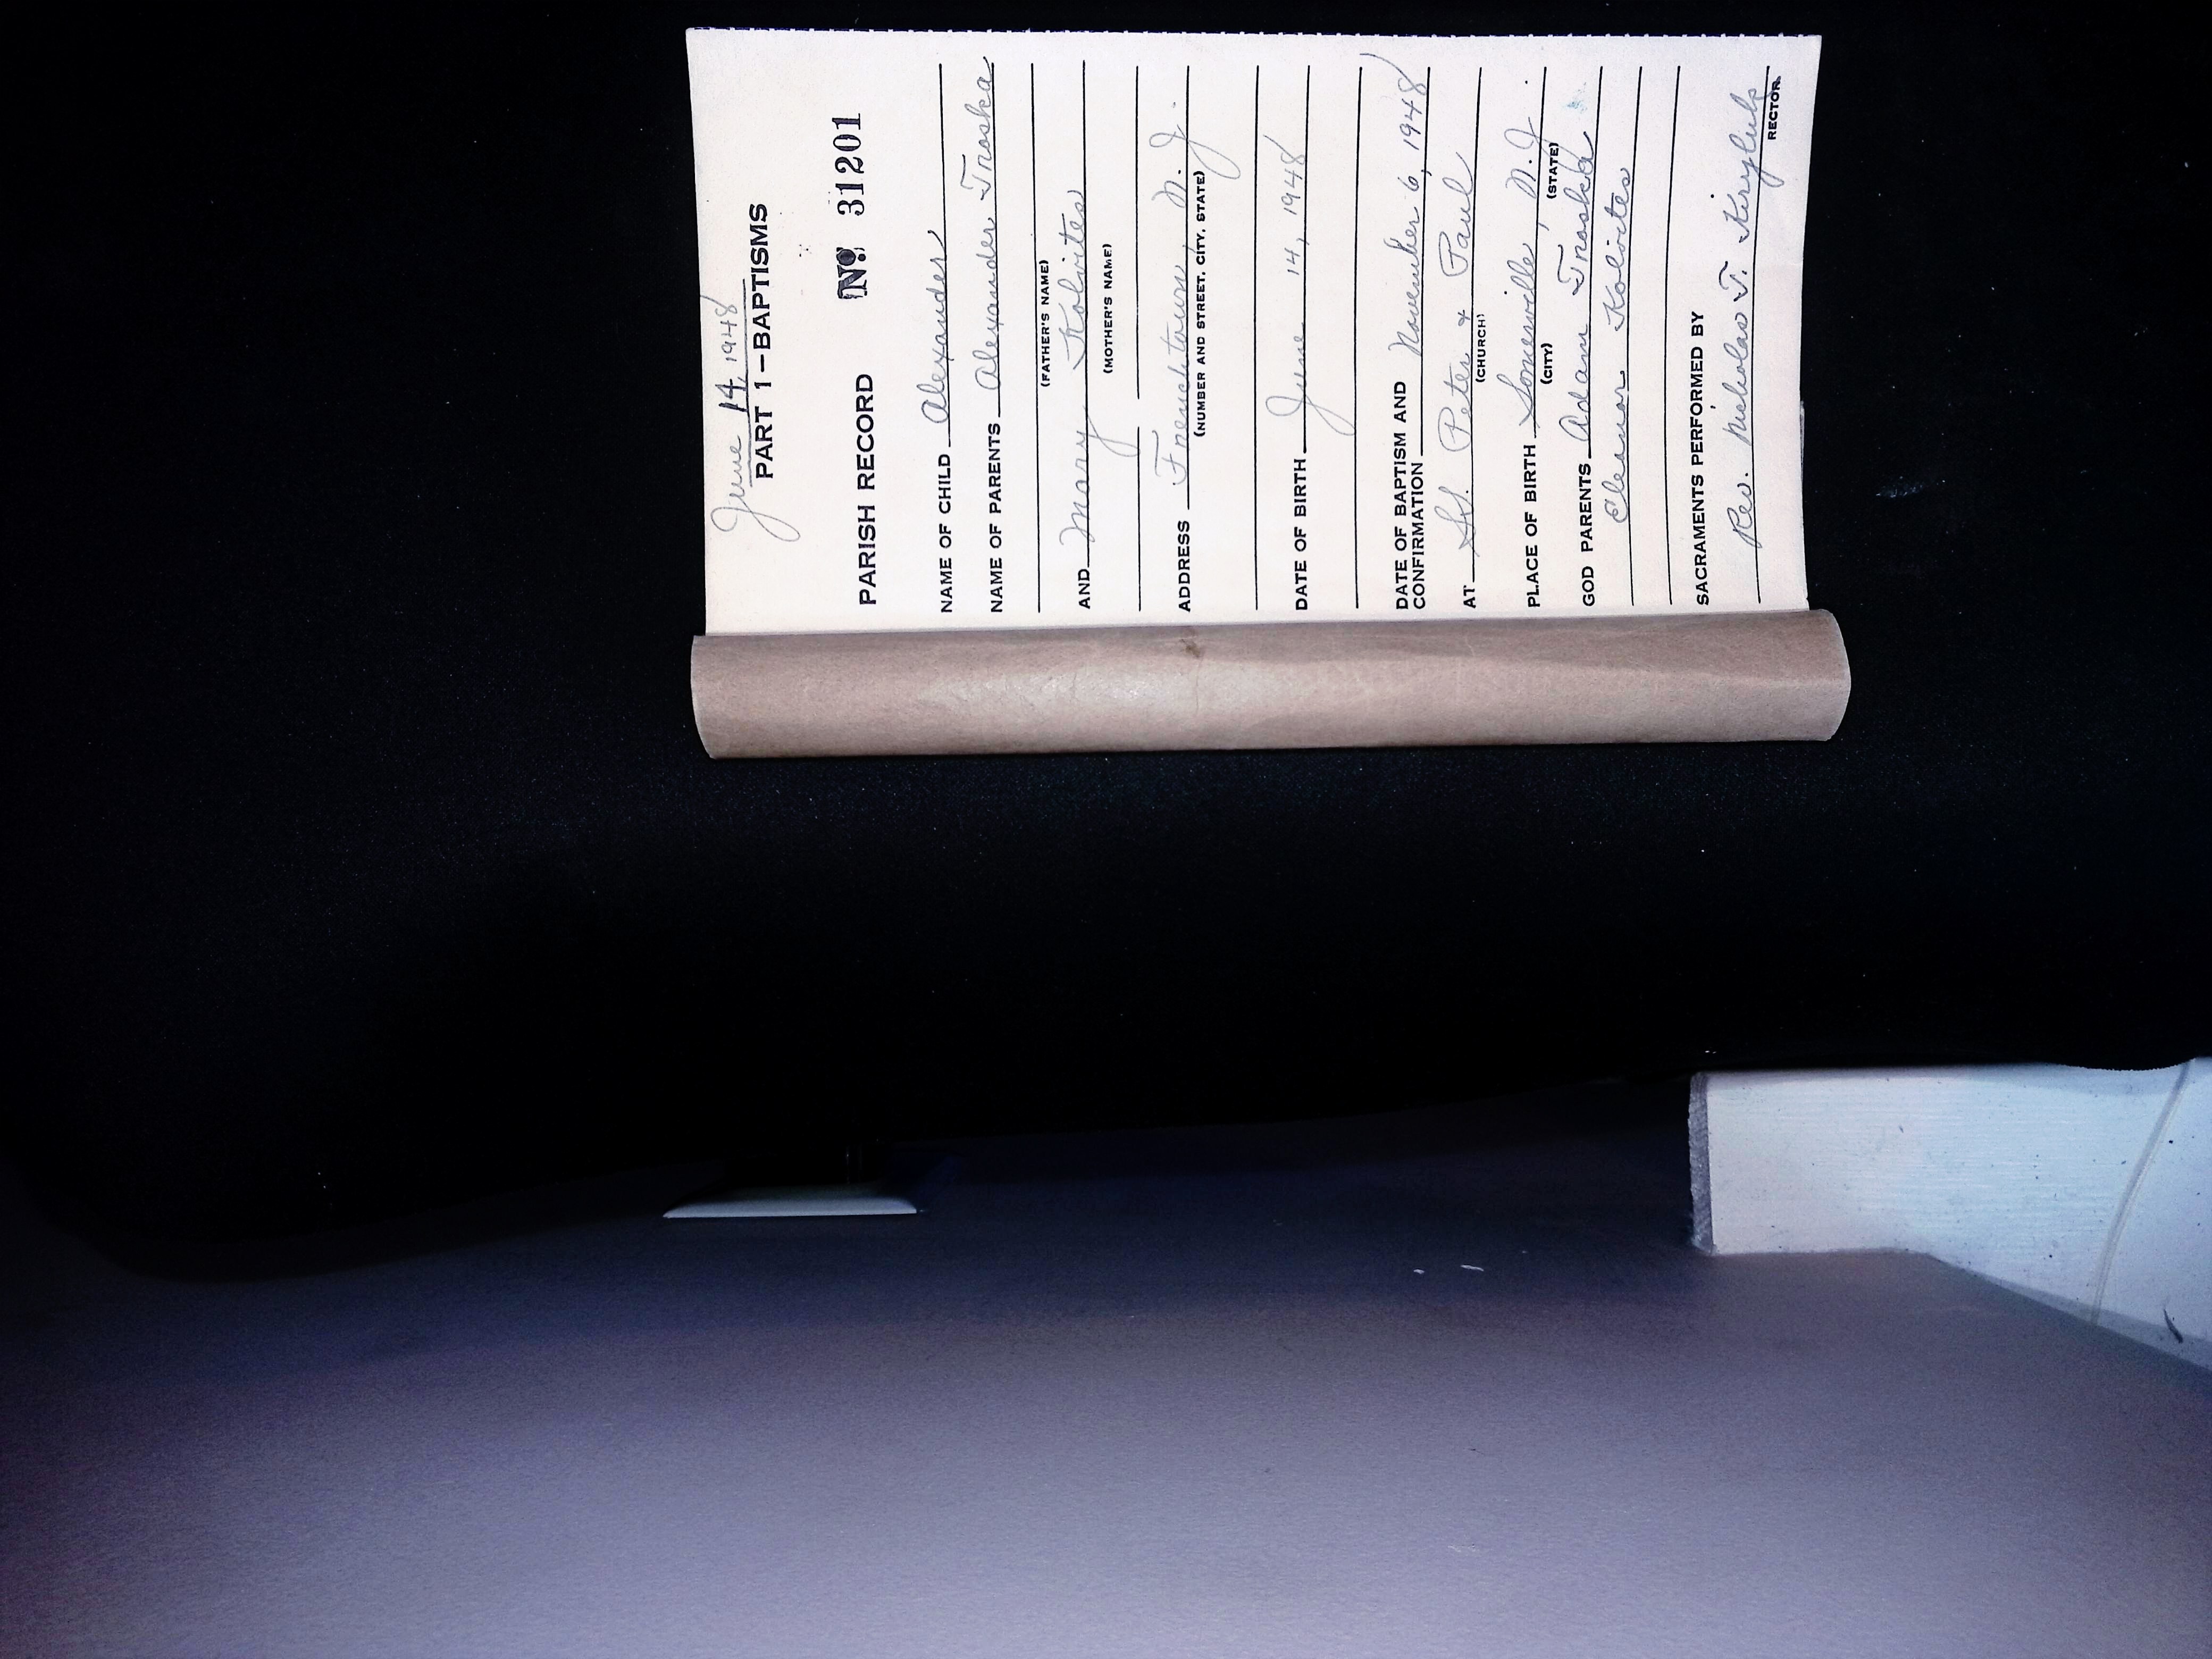 June 14, 1948
PART 1—BAPTISMS
PARISH RECORD No. 31201
NAME OF CHILD Alexander
NAME OF PARENTS Alexander Troska
(FATHER'S NAME)
AND Mary Kolvites
(MOTHER'S NAME)
ADDRESS Frenchtown, N. J.
(NUMBER AND STREET, CITY, STATE)
DATE OF BIRTH June 14, 1948
DATE OF BAPTISM AND
CONFIRMATION November 6, 1948
AT SS. Peter & Paul
(CHURCH)
PLACE OF BIRTH Somerville, N.J.
(CITY) (STATE)
GOD PARENTS Adam Troska
Eleanor Kolvites
SACRAMENTS PERFORMED BY
Rev. Nicholas T. Kiryluk
RECTOR.